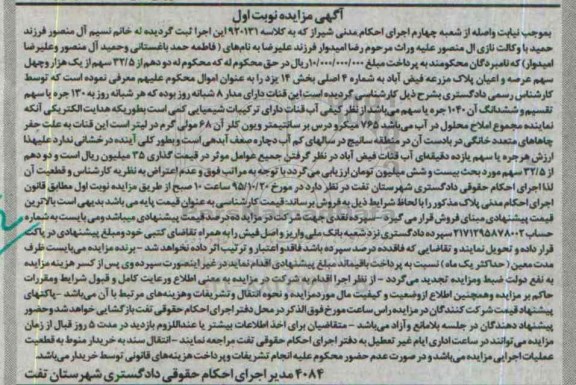 آگهی مزایده نوبت اول
بموجب نیابت واصله از شعبه چهارم اجرای احکام مدنی شیراز که به کلاسه ۹۲۰۱۳۱ این اجرا ثبت گردیده له خانم نسیم آل منصور فرزند
حمید با وکالت نازی ال منصور علیه وراث مرحوم رضا امیدوار فرزند علیرضا به نام‌های ( فاطمه حمد باغستانی وحمید آل منصور وعلیرضا
امیدوار) که نامبردگان محکومند به پرداخت مبلغ ۱۰/۰۰۰/۰۰۰/۰۰۰ ریال در حق محکوم له که محکوم له دو دهم از ۳۲/۵ سهم از یک هزار وچهل
سهم عرصه و اعیان پلاک مزرعه فیض آباد به شماره ۴ اصلی بخش ۱۴ یزد را به عنوان اموال محکوم علیهم معرفی نموده است که توسط
کارشناس رسمی دادگستری بشرح ذیل کارشناسی گردیده است این قنات دارای مدار ۸ شبانه روز بوده که هر شبانه روز به ۱۳۰ جره یا سهم
تقسیم و ششدانگ آن ۱۰۴۰ جره یا سهم می‌باشد از نظر کیفی آب قنات دارای ترکیبات شیمیایی کمی است بطوریکه هدایت الکتریکی آنکه
نماینده مجموع املاح محلول در آب می‌باشد ۷۶۵ میکرو درس بر سانتیمتر ویون کلر آن ۶۸ مولی گرم در لیتر است این قنات به علت حفر
چاهاهای متعدد خانگی در بادست آن در منطقه سانیج در سالهای کم آب دچاره ضعف آبدهی است و بطور کلی آینده در خشانی ندارد علیهذا
ارزش هرجره یا سهم یازده دقیقه‌ای آب قنات فیض آباد در نظر گرفتن جمیع عوامل موثر در قیمت گذاری ۳۵ میلیون ریال است و دو دهم
از ۳۲/۵ سهم مورد بحث بیست و شش میلیون تومان ارزیابی می‌گردد با توجه به مراتب فوق و عدم اعتراض به نظریه کارشناس و قطعیت آن
لذا اجرای احکام حقوقی دادگستری شهرستان تفت در نظر دارد در مورخ ۹۵/۱۰/۲۰ ساعت ۱۰ صبح از طریق مزایده نوبت اول مطابق قانون
اجرای احکام مدنی پلاک مذکور را با لحاظ شرایط ذیل به فروش برساند: قیمت کارشناسی به عنوان قیمت پایه می باشد بدیهی است بالاترین
قیمت پیشنهادی مبنای فروش قرار می گیرد – سپرده نقدی جهت شرکت در مزایده ده درصد قیمت پیشنهادی میباشد ومی بایست به شماره
حساب ۲۱۷۱۲۹۵۸۷۸۰۰۲ سپرده دادگستری نزد شعبه بانک ملی واریز و اصل فیش را به همراه تقاضای کتبی خود ومبلغ پیشنهادی در پاکت
قرار داده و تحویل نمایند و تقاضایی که فاقد ده درصد سپرده باشد فاقد و اعتبار و ترتیب اثر داده نخواهد شد – برنده مزایده می‌بایست ظرف
مدت معین (حداکثر یک ماه) نسبت به پرداخت باقیماند مبلغ پیشنهادی اقدام نماید در غیر اینصورت سپرده وی پس از کسر هزینه مزایده
به نفع دولت ضبط ومزایده تجدید می‌گردد – از نظر اجرا اقدام به شرکت در مزایده به معنی اطلاع ورعایت کامل و قبول شرایط ومقررات
حاکم بر مزایده و همچنین اطلاع از وضعیت و کیفیت مال مورد مزایده و نحوه انتقال و تشریفات وهزینه‌های مرتبط با آن می‌باشد – پاکتهای
پیشنهاد قیمت شرکت کنندگان در مزایده راس ساعت مورخ فوق الذکر در محل دفتر اجرای احکام حقوقی تفت بازگشایی خواهد شد وحضور
پیشنهاد دهندگان در جلسه بلامانع و آزاد می‌باشد – متقاضیان برای اخذ اطلاعات بیشتر یا عنداللزوم بازدید در مدت ۵ روز قبال از زمان
مزایده می‌توانند در ساعت اداری ایام غیر تعطیل به دفتر اجرای احکام حقوقی تفت مراجعه نمایند – انتقال سند به خریدار منوط به قطعیت
عملیات اجرایی مزایده می‌باشد و در صورت عدم حضور محکوم علیه انجام تشریفات وپرداخت هزینه‌های قانونی توسط خریدار می‌باشد
۴۰۸۴ مدیر اجرای احکام حقوقی دادگستری شهرستان تفت